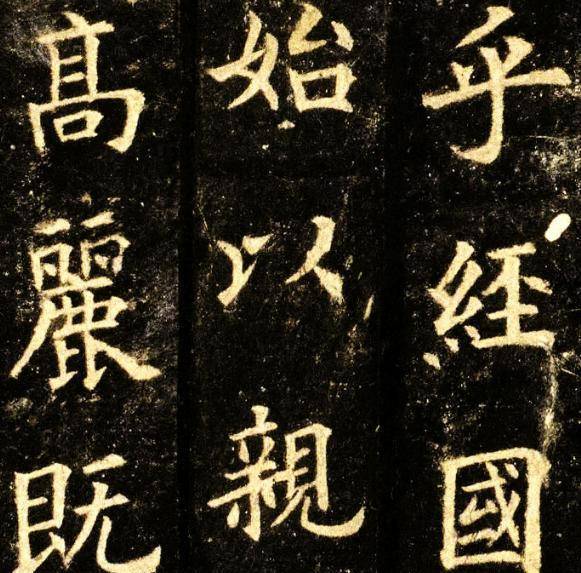 乎經國
始以親
髙麗既